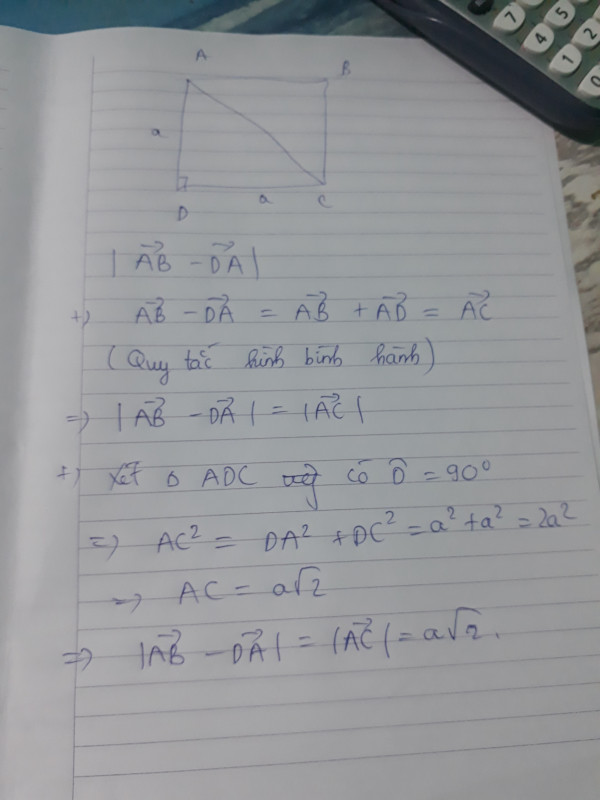 A B
a
D a C
| $\overrightarrow{AB}$ - $\overrightarrow{DA}$ |
+) $\overrightarrow{AB}$ - $\overrightarrow{DA}$ = $\overrightarrow{AB}$ + $\overrightarrow{AD}$ = $\overrightarrow{AC}$
(Quy tắc hình bình hành)
=> | $\overrightarrow{AB}$ - $\overrightarrow{DA}$ | = | $\overrightarrow{AC}$ |
+) Xét Δ ADC có $\hat{D}$ = 90°
=> AC² = DA² + DC² = a² + a² = 2a²
=> AC = a√2
=> | $\overrightarrow{AB}$ - $\overrightarrow{DA}$ | = | $\overrightarrow{AC}$ | = a√2.
7 4 5 1 2 0